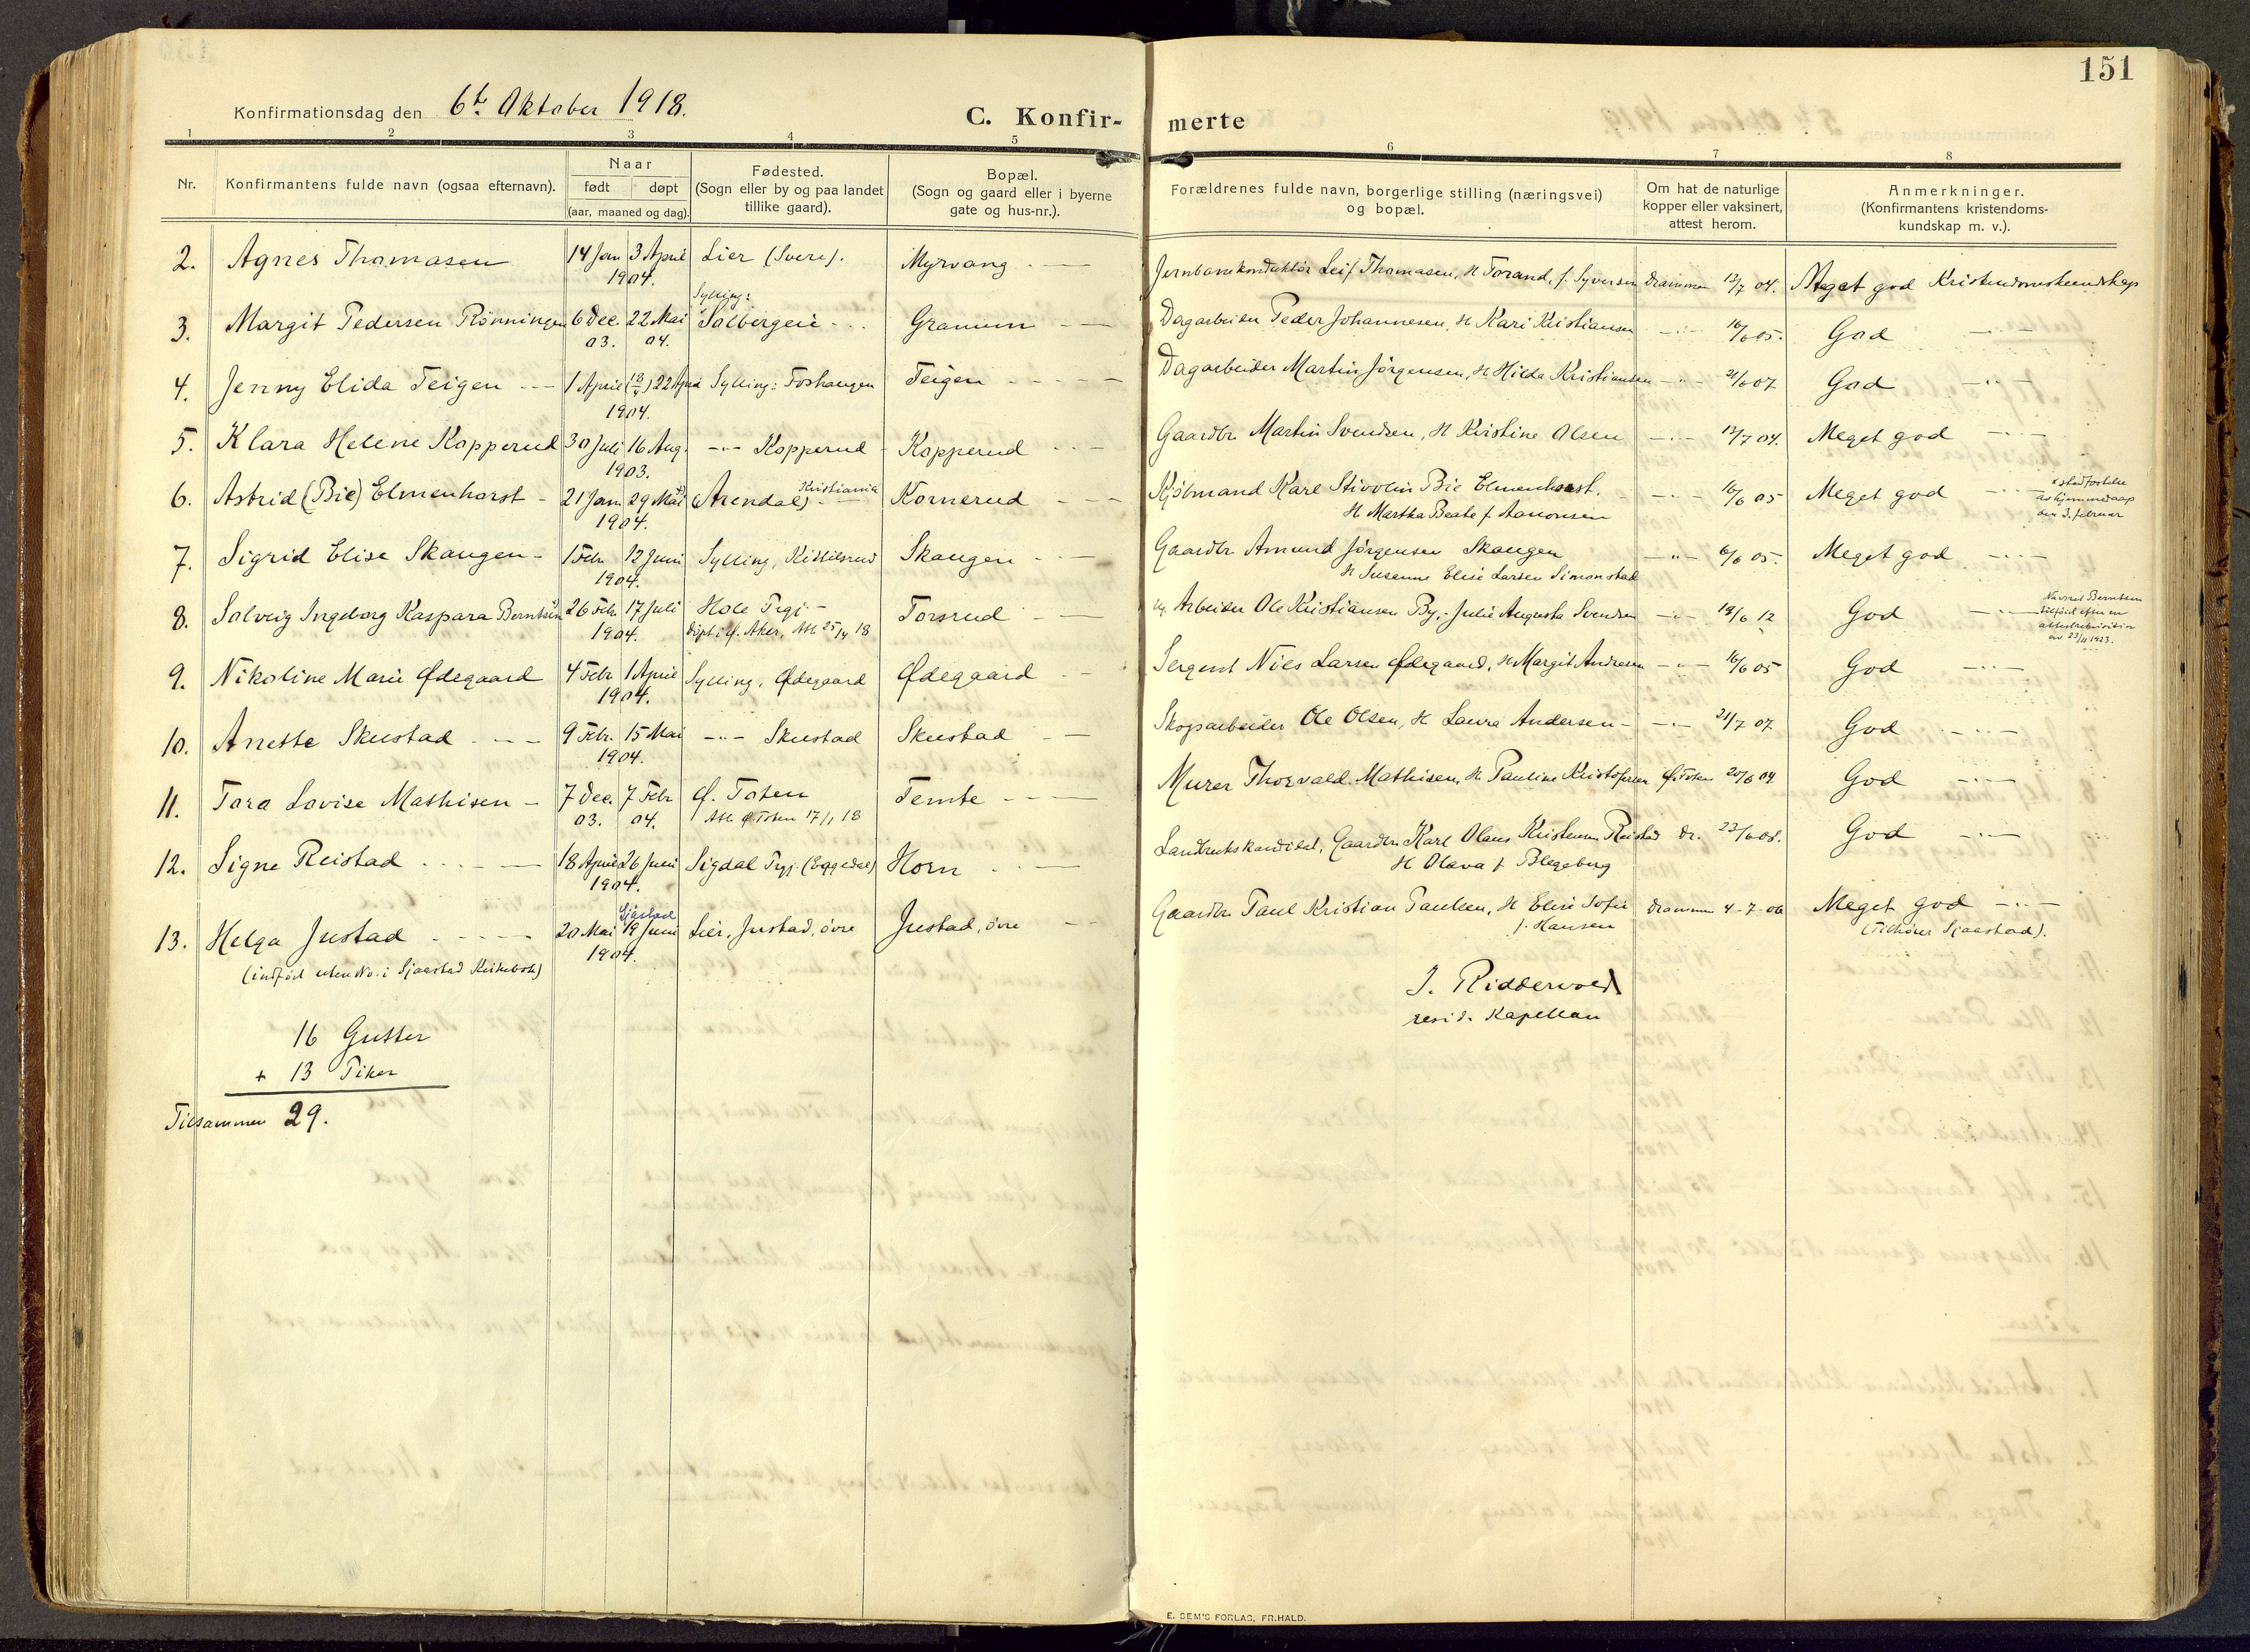 151
Konfirmationsdag den 6te Oktober 1918.
C. Konfir-
merte
1 2 3 4 5 6 7 8
Nr.
Konfirmantens fulde navn (ogsaa efternavn).
Naar
født døpt
(aar, maaned og dag).
Fødested.
(Sogn eller by og paa landet
tillike gaard).
Bopæl.
(Sogn og gaard eller i byerne
gate og hus-nr.).
Forældrenes fulde navn, borgerlige stilling (næringsvei)
og bopæl.
Om hat de naturlige
kopper eller vaksinert,
attest herom.
Anmerkninger.
(Konfirmantens kristendoms-
kundskap m. v.).
2. Agnes Thomasen 14 Jan 3 April Lier (Svere). Myrvang Jernbanekonduktør Leif Thomasen, H Torand, f. Syversen Drammen 13/7 04. Meget god Kristendomskundskap
1904.
Sylling:
3. Margit Pedersen Rönningen 6 Dec. 22 Mai Solbergeie Granum Dagarbeider Peder Johannesen, H Kari Kristiansen 16/6 05. God
03. 04.
4. Jenny Elida Teigen 1 April (18/4) 22 April Sylling: Foshaugen Teigen Dagarbeider Martin Jörgensen, H Hilda Kristiansen 21/6 07 God
1904.
5. Klara Helene Kopperud 30 Juli 16 Aug. -"- Kopperud Kopperud Gaardbr. Martin Svendsen, H Kristine Olsen 13/7 04. Meget god
1903.
6. Astrid (Bie) Elmenhorst 21 Jan. 29 Mai x) (Arendal) Kristiania Kornerud Kjöbmand Karl Bie Elmenhorst. 16/6 05 Meget god
1904. H Martha Beate f. Aanonsen
x stadfestelse
av hjemmedaap
den 3. februar
7. Sigrid Elise Skaugen 1 Febr. 12 Juni Sylling, Kittilsrud Skaugen Gaardbr. Amund Jörgensen Skaugen 6/6 05. Meget god
1904. H Susanne Elise Larsen Simonstad
8. Solveig Ingeborg Kaspara Berntsen 26 Febr. 17 Juli Hole Prgj. Torsrud Ug. Arbeider Ole Kristiansen By, Julie Augusta Svendsen 19/6 12 God
1904. döpt i Ø. Aker, Att. 25/4 18
Navnet Berntsen
tilføiet efter en
attestrekvisition
av 23/11 1923.
9. Nikoline Marie Ødegaard 4 Febr. 1 April Sylling, Ødegaard Ødegaard Sergent Nils Larsen Ødegaard, H Margit Andresen 16/6 05 God
1904.
10. Anette Skustad 9 Febr. 15 Mai -"- Skustad Skustad Skogsarbeider Ole Olsen, H Laura Andersen 21/7 07. God
1904.
11. Tora Lovise Mathisen 7 Dec. 7 Febr. Ø. Toten Temte Murer Thorvald Mathisen, H. Pauline Kristofersen Ø. Toten 20/6 04 God
03. 04. Att. Ø Toten 17/1 18
12. Signe Reistad 18 April 26 Juni Sigdal Prgj. (Eggedal) Horn Landbrukskandidat, Gaardbr. Karl Olaus Kristensen Reistad Dr. 22/6 08. God
1904. H Olava f. Blegeberg
Sjåstad
13. Helga Justad 20 Mai 19 Juni Lier, Justad, övre Justad, övre Gaardbr. Paul Kristian Paulsen, H Elise Sofie Drammen 4-7-06 Meget god
1904. f. Hansen (Tilhører Sjaastad).
(indført uten No. i Sjaastad Kirkebok)
J. Riddervold
resid. Kapellan
16 Gutter
+ 13 Piker
Tilsammen 29.
E. SEM'S FORLAG, FR.HALD.